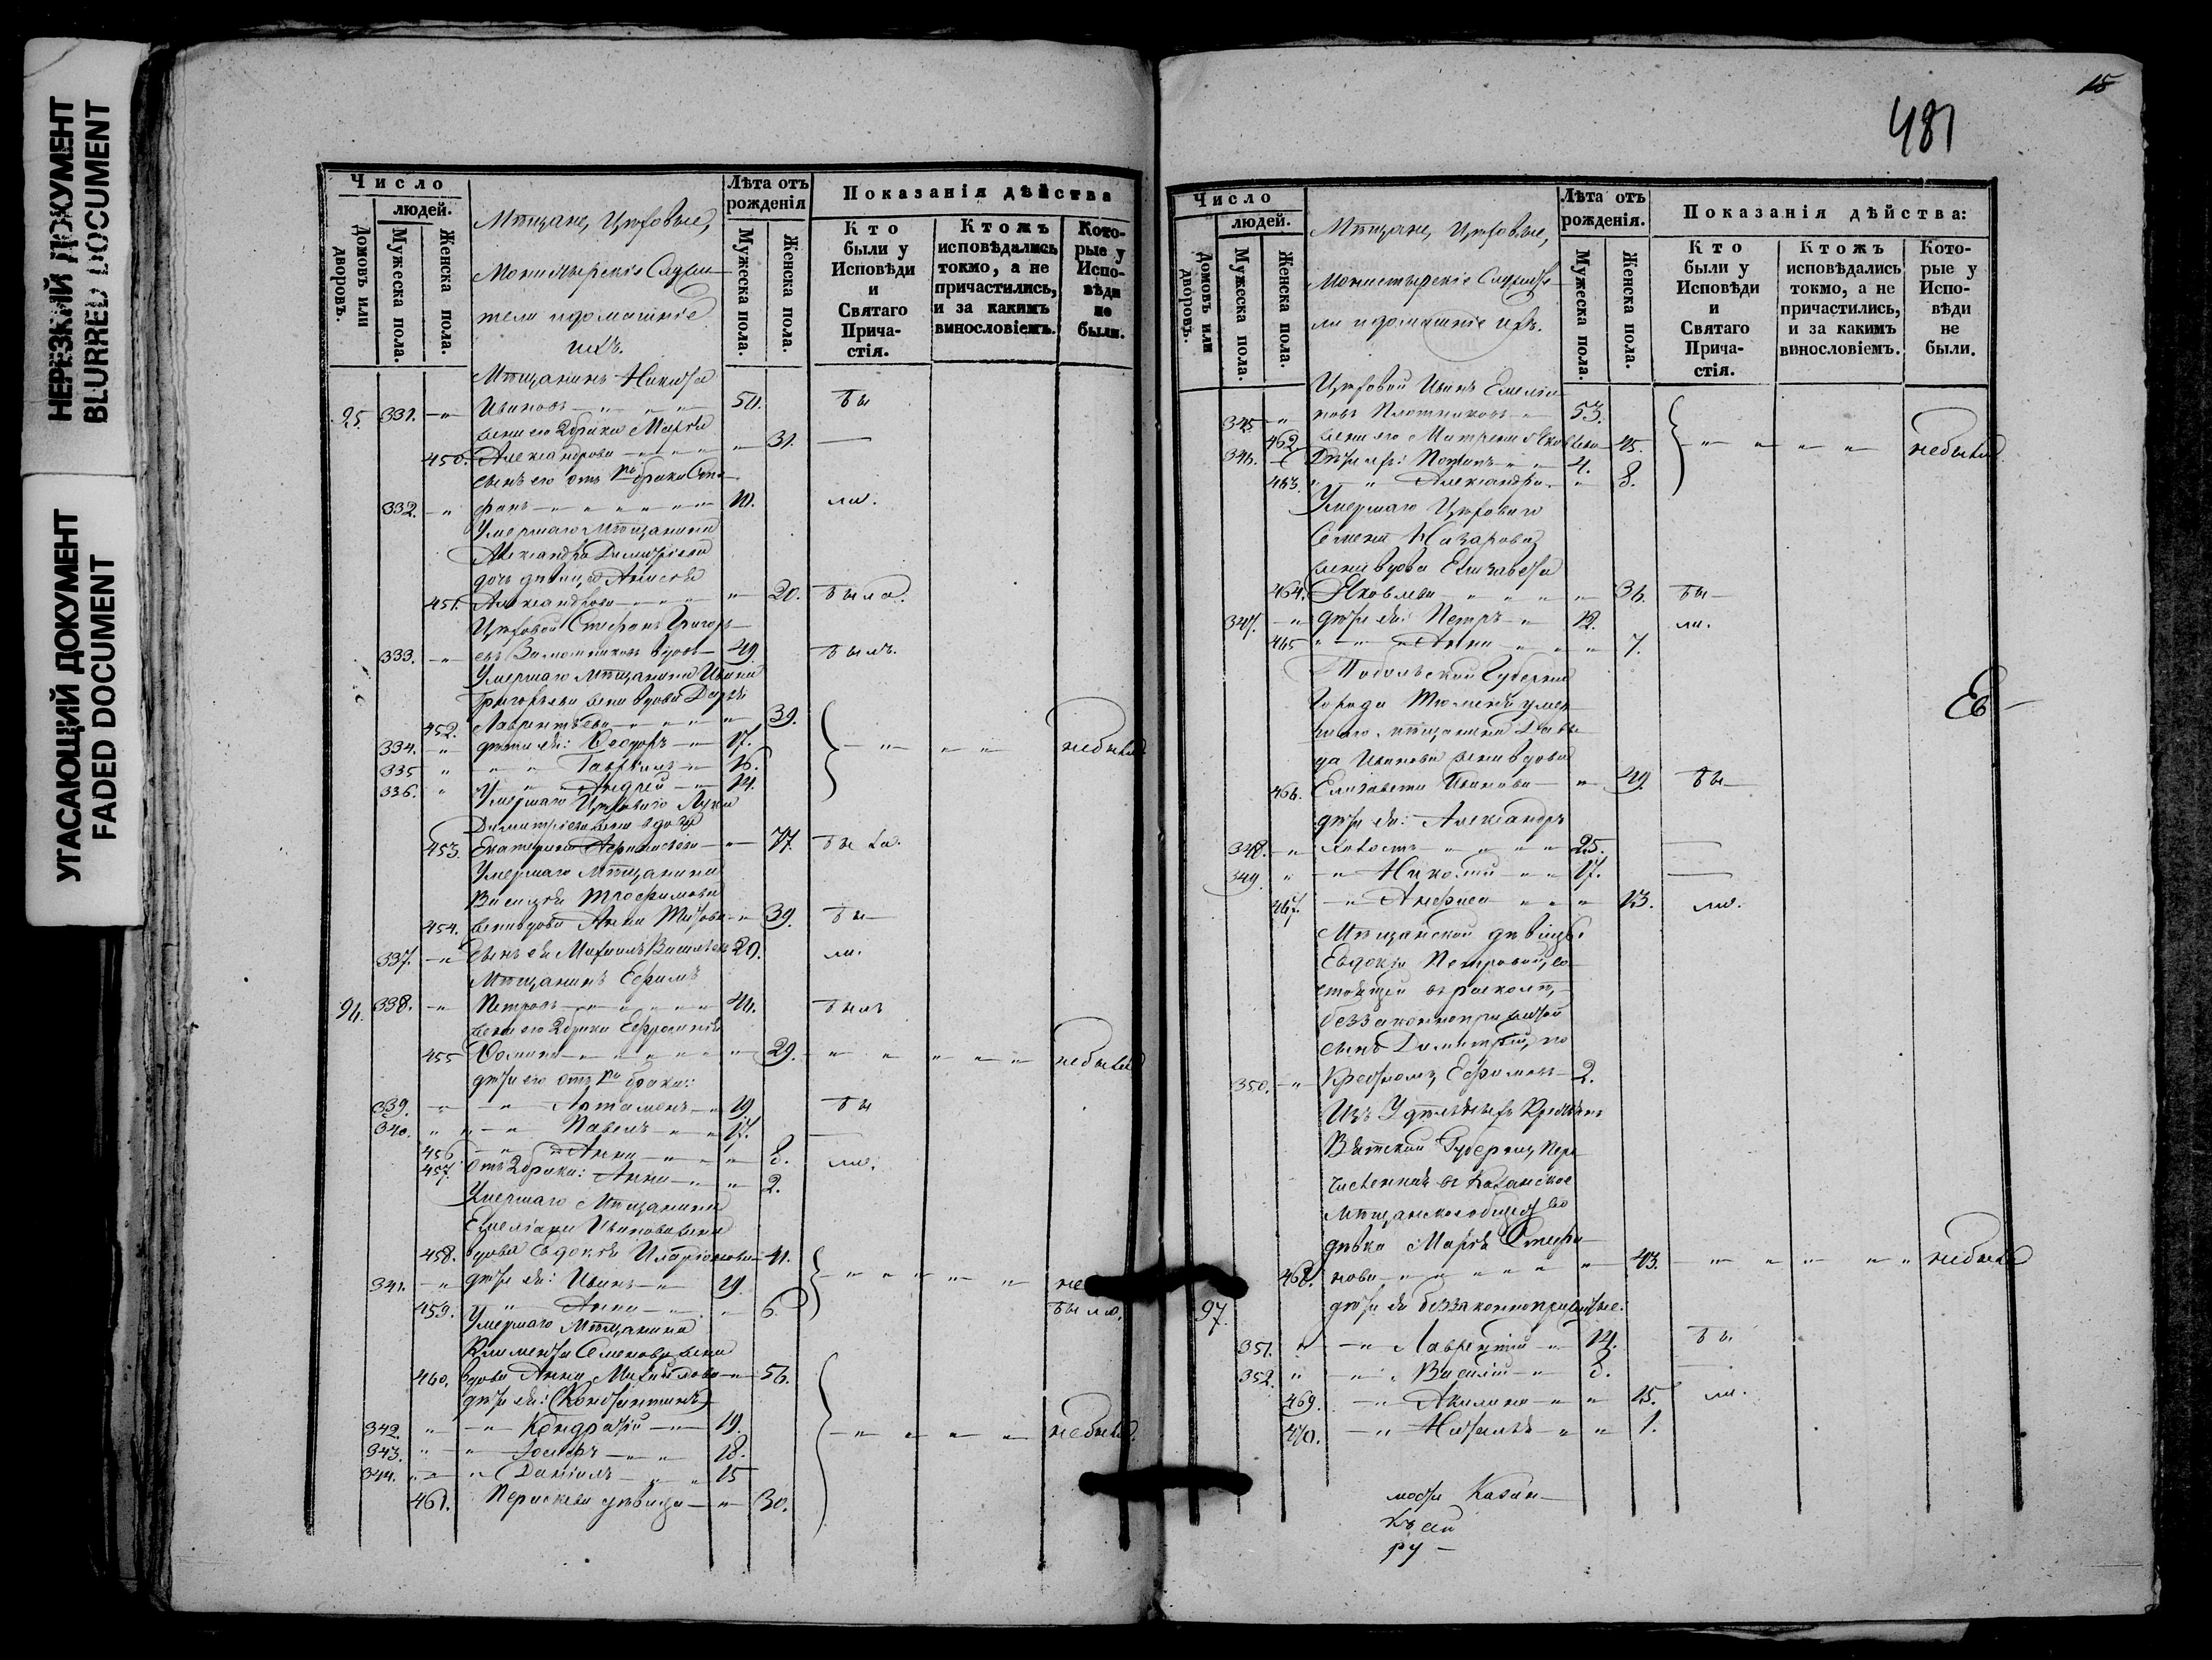 НЕРЕЗКИЙ ДОКУМЕНТ
BLURRED DOCUMENT
УГАСАЮЩИЙ ДОКУМЕНТ
FADED DOCUMENT
Число
людей.
Домовъ или дворовъ.
Мужеска пола.
Женска пола.
Мѣщане, Цѣховые,
Монастырскіе Служи-
тели и домашніе
ихъ.
Лѣта отъ рожденія
Мужеска пола.
Женска пола.
Показанія дѣйства
Кто были у Исповѣди и Святаго Прича-стія.
Ктожъ исповѣдались токмо, а не причастились, и за какимъ винословіемъ.
Кото-рые у Испо-вѣди не были.
Мѣщанинъ Никита
331. Ивановъ 50. бы
жена его 2 брака Марья
450. Александрова 31.
сынъ его отъ 1го брака Сте-
332. фанъ 10. ли.
Умершаго Мѣщанина
Александра Димитріева
дочь дѣвица
451. Александрова 20. была.
Цѣховой Стефанъ Григорь-
333. евъ вдовъ 49. былъ.
Умершаго Мѣщанина Ивана
Григорьева жена вдова Дарья
452. Лаврентьева 39.
334. дѣти ея: Ѳеодоръ 17. небыли
335 Гавріилъ 16.
336. Андрей 14.
Умершаго Цѣховаго Луки
Димитріева жена вдова
453. Екатерина 77. была.
Умершаго Мѣщанина
Василья Трофимова
454. жена вдова Анна Титова 39. бы
337. сынъ ея Михаилъ Васильевъ 20. ли.
Мѣщанинъ Ефимъ
338. Петровъ 44. былъ
жена его 2 брака Ефросинья
455 Ѳомина 29. небыла
дѣти его отъ 1го брака:
339. Артамонъ 19. бы
340. Павелъ 17.
456 Анна 8. ли.
457. отъ 2 брака: Анна 2.
Умершаго Мѣщанина
Емеліана Иванова жена
458. вдова Евдокія Иларіонова 41.
341. дѣти ея: Иванъ 19. не
459. Анна 6. были.
Умершаго Мѣщанина
Климента Семенова жена
460. вдова Анна Михайлова 56.
дѣти ея: (Константинъ)
342. Кондратій 19. небыли.
343. Іосифъ 18.
344. Даніилъ 15
461. Параскева дѣвица 30.
15
481
Число
людей.
Домовъ или дворовъ.
Мужеска пола.
Женска пола.
Мѣщане, Цѣховые,
Монастырскіе Служите-
ли и домашніе ихъ.
Лѣта отъ рожденія.
Мужеска пола.
Женска пола.
Показанія дѣйства:
Кто были у Исповѣди и Святаго Прича-стія.
Ктожъ исповѣдались токмо, а не причастились, и за какимъ винословіемъ.
Кото-рые у Испо-вѣди не были.
Цѣховой Иванъ Емелья-
345 новъ Плотниковъ 53.
462. жена его Матрена Яковлева 45. небыли
346. Дѣти ихъ: 4.
463. Александра 8.
Умершаго Цѣховаго
Семена Назарова
жена вдова Елизавета
464. Яковлева 36. бы
347. дѣти ея: Петръ 12. ли.
465 Анна 7.
Тобольской Губерніи
города Тюмени умер-
шаго мѣщанина Давы-
да Иванова жена вдова
466. Елизавета Иванова 49. бы
дѣти ея: Александръ
348. холостъ 25.
349. Николай 17.
467. Анфиса 13. ли.
Мѣщанской дѣвицы
Евдокіи Петровой, со-
стоящей въ расколѣ,
беззаконноприжитой
сынъ Димитрій, по
350. Крестномъ Ефимовъ 2.
Изъ Удѣльныхъ Крестьянъ
Вятской Губерніи, пере-
численная въ Казанское
Мѣщанское общество
дѣвка Марья Стефа-
468. нова 43. небыла
97. дѣти ея беззаконноприжитые:
351. Лаврентій 14. бы
352. Василій 8.
469. Акилина 15. ли.
470. Наталья 1.
Ев
Казан
ру